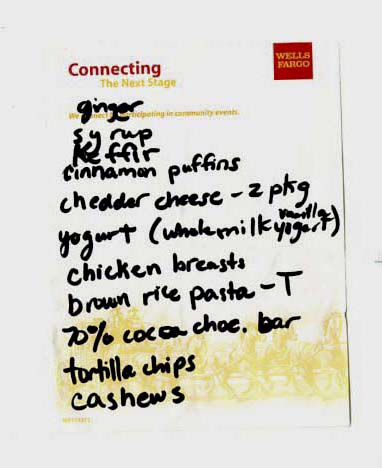 WELLS
FARGO
Connecting
The Next Stage
We connect by participating in community events.
ginger
syrup
Keffir
cinnamon puffins
chedder cheese - 2 pkg
yogurt (whole milk vanilla yogurt)
chicken breasts
brown rice pasta - T
70% cocoa choc. bar
tortilla chips
cashews